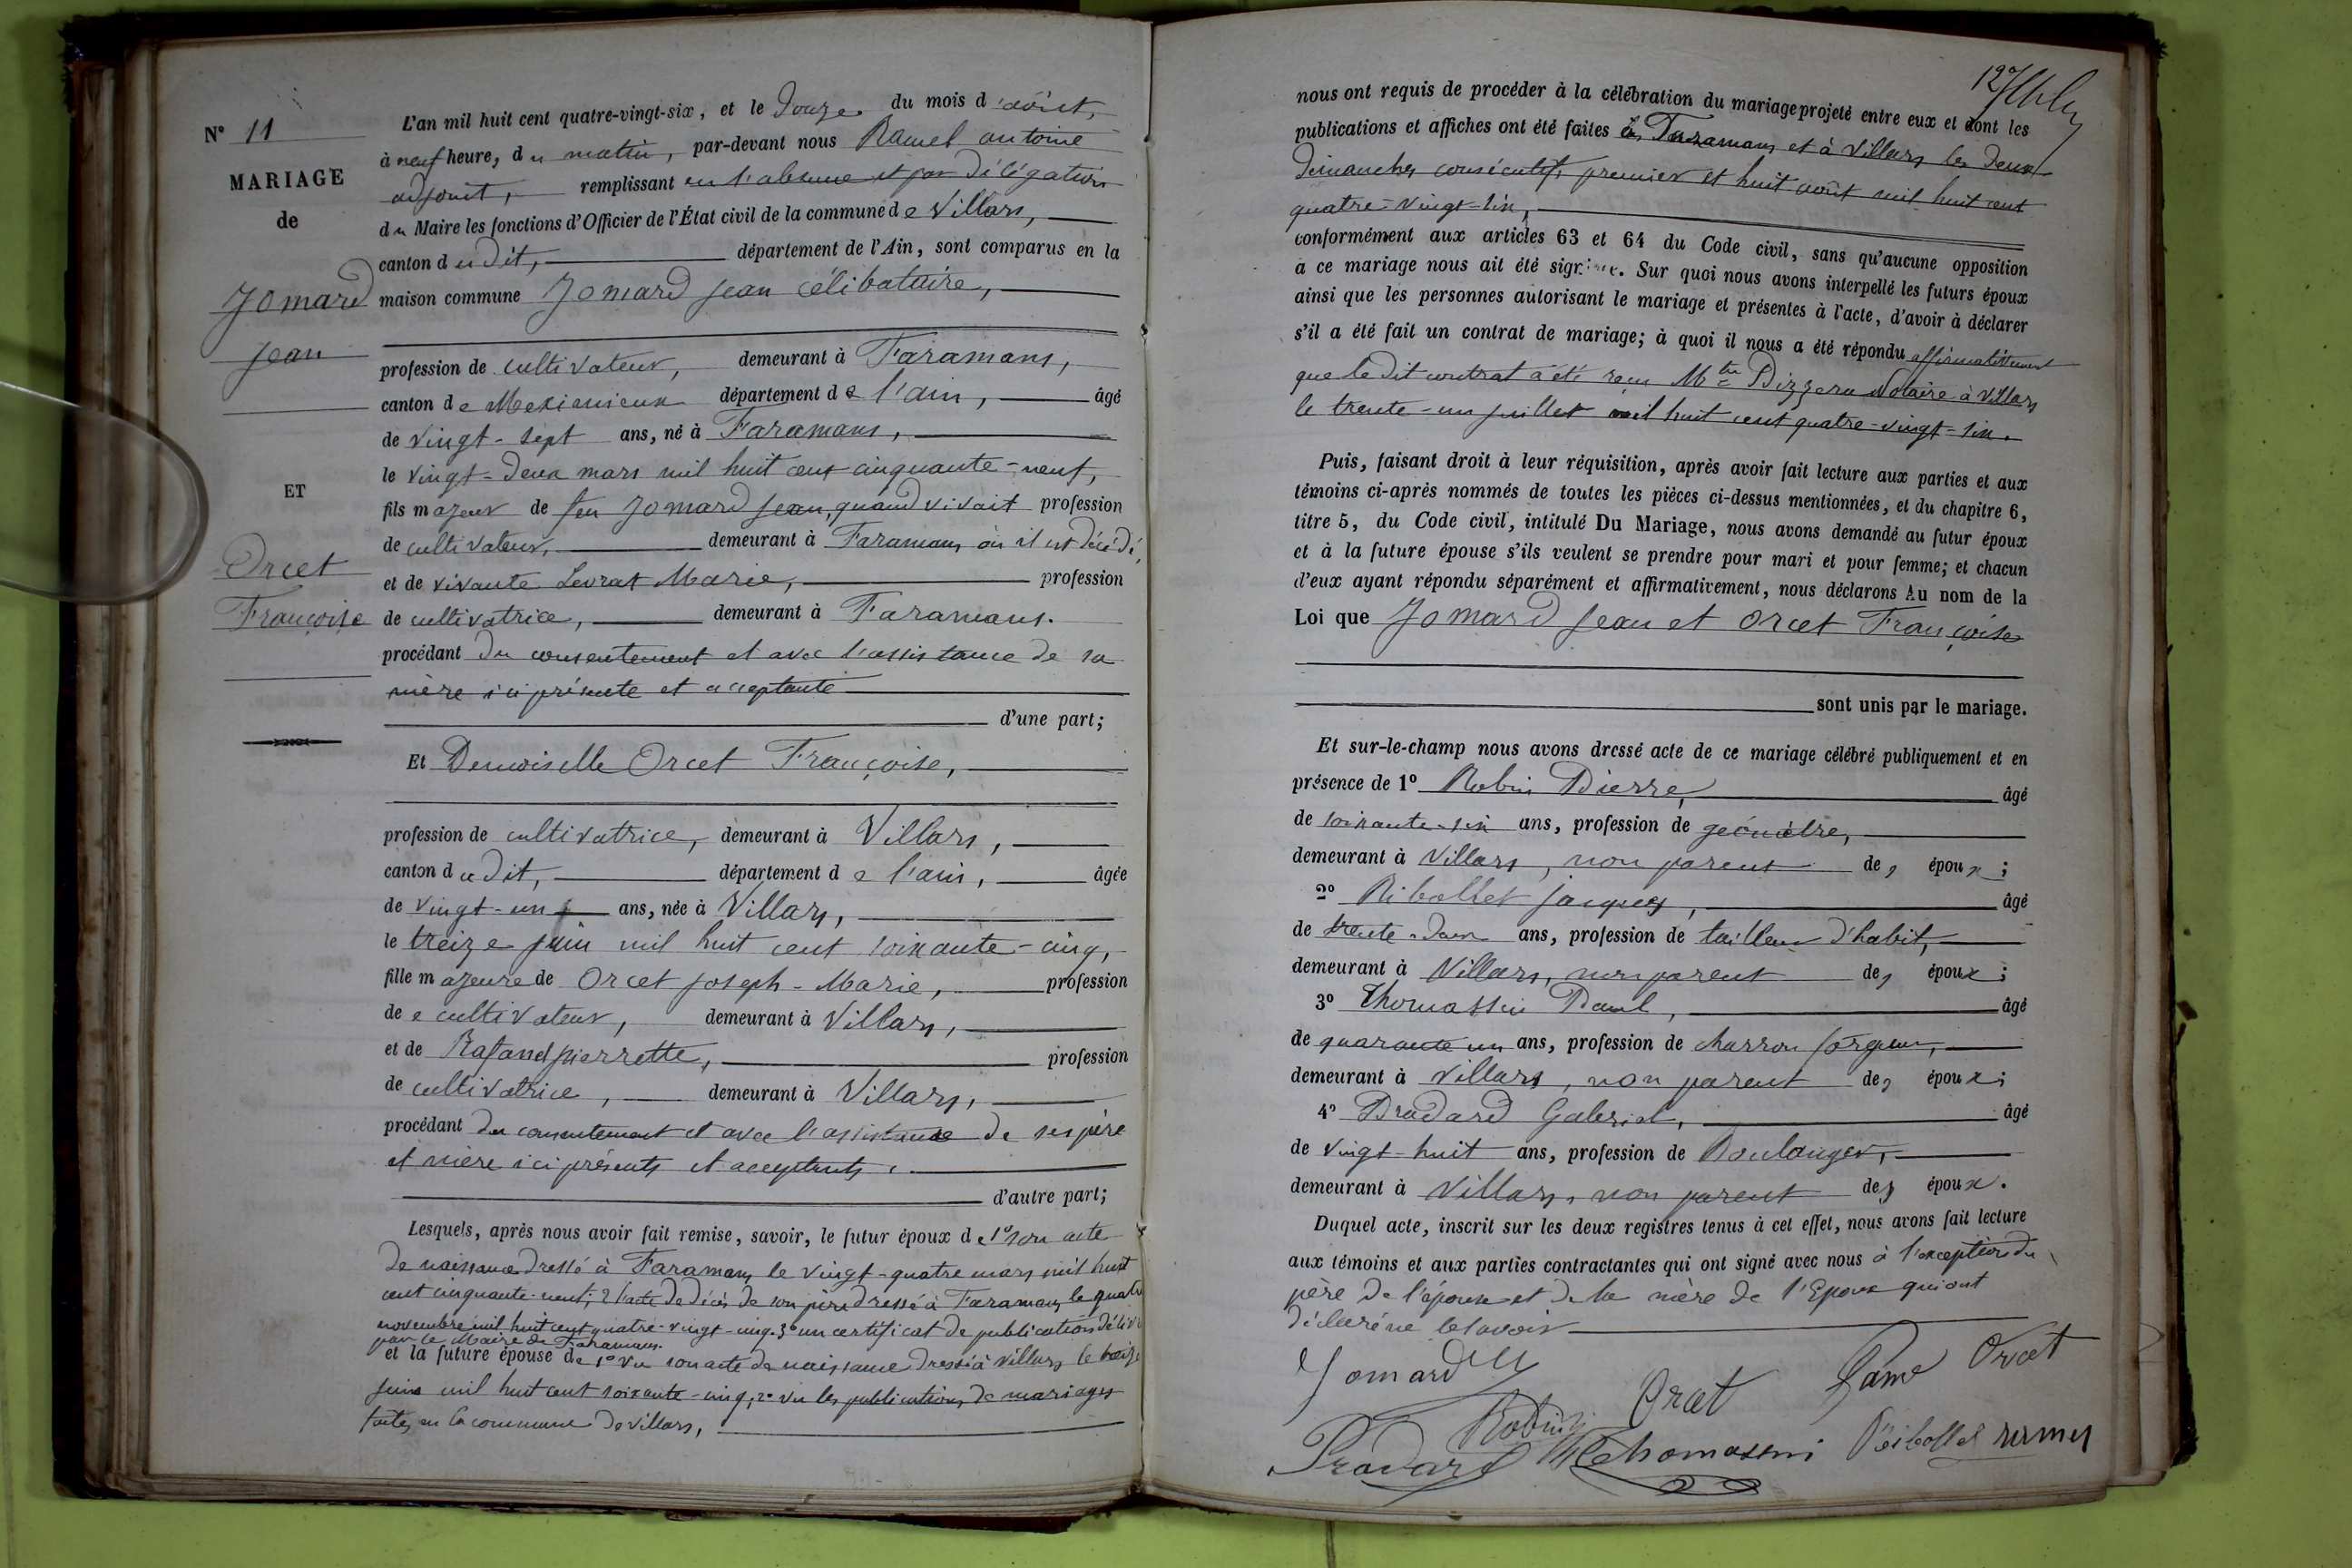 N° 11
MARIAGE
de
Jomard
Jean
ET
Orcet
Françoise
L'an mil huit cent quatre-vingt-six, et le Douze du mois d'août,
à neuf heure, du matin, par-devant nous Ramel antoine
adjoint, remplissant en l'absence et par délégation
du Maire les fonctions d'Officier de l'État civil de la commune de Villars,
canton dudit, département de l'Ain, sont comparus en la
maison commune Jomard Jean célibataire,
profession de cultivateur, demeurant à Faramans,
canton de Meximieux département de l'ain, âgé
de vingt-sept ans, né à Faramans,
le vingt-deux mars mil huit cent cinquante-neuf,
fils majeur de feu Jomard Jean, quand vivait profession
de cultivateur, demeurant à Faramans où il est décédé,
et de vivante Levrat Marie, profession
de cultivatrice, demeurant à Faramans.
procédant du consentement et avec l'assistance de sa
mère ici présente et acceptante
d'une part;
Et Demoiselle Orcet Françoise,
profession de cultivatrice, demeurant à Villars,
canton dudit, département de l'ain, âgée
de vingt-un ans, née à Villars,
le treize juin mil huit cent soixante-cinq,
fille majeure de Orcet Joseph-Marie, profession
de cultivateur, demeurant à Villars,
et de pierrette, profession
de cultivatrice, demeurant à Villars,
procédant du consentement et avec l'assistance de ses père
et mère ici présents et acceptants.
d'autre part;
Lesquels, après nous avoir fait remise, savoir, le futur époux de 1° son acte
de naissance dressé à Faramans le vingt-quatre mars mil huit
cent cinquante-neuf; 2° l'acte de décès de son père dressé à Faramans le quatre
novembre mil huit cent quatre-vingt-cinq. 3° un certificat de publication délivré
par le Maire de Faramans.
et la future épouse de 1° vu son acte de naissance dressé à Villars le treize
juin mil huit cent soixante-cinq, 2° vu les publications de mariages
faites en la commune de Villars,
nous ont requis de procéder à la célébration du mariage projeté entre eux et dont les
publications et affiches ont été faites à Faramans et à Villars les deux
dimanches consécutifs premier et huit août mil huit cent
quatre-vingt-six,
conformément aux articles 63 et 64 du Code civil, sans qu'aucune opposition
a ce mariage nous ait été signifiée. Sur quoi nous avons interpellé les futurs époux
ainsi que les personnes autorisant le mariage et présentes à l'acte, d'avoir à déclarer
s'il a été fait un contrat de mariage; à quoi il nous a été répondu affirmativement
que le dit contrat a été reçu Mtre Pizzera Notaire à Villars
le trente-un juillet mil huit cent quatre-vingt-six.
Puis, faisant droit à leur réquisition, après avoir fait lecture aux parties et aux
témoins ci-après nommés de toutes les pièces ci-dessus mentionnées, et du chapitre 6,
titre 5, du Code civil, intitulé Du Mariage, nous avons demandé au futur époux
et à la future épouse s'ils veulent se prendre pour mari et pour femme; et chacun
d'eux ayant répondu séparément et affirmativement, nous déclarons Au nom de la
Loi que Jomard Jean et Orcet Françoise
sont unis par le mariage.
Et sur-le-champ nous avons dressé acte de ce mariage célébré publiquement et en
présence de 1° Robin Pierre, âgé
de soixante-six ans, profession de géomètre,
demeurant à Villars, non parent des époux;
2° Ribollet Jacques, âgé
de trente-deux ans, profession de tailleur d'habit,
demeurant à Villars, non parent des époux;
3° Thomassin Paul, âgé
de quarante un ans, profession de charron forgeur,
demeurant à Villars, non parent des époux;
4° Pradard Gabriel, âgé
de vingt-huit ans, profession de Boulanger,
demeurant à Villars, non parent des époux.
Duquel acte, inscrit sur les deux registres tenus à cet effet, nous avons fait lecture
aux témoins et aux parties contractantes qui ont signé avec nous à l'exception du
père de l'épouse et de la mère de l'Epoux qui ont
déclaré ne le savoir
Jomard Orcet Orcet
Robin
Pradard Thomassin Ribollet